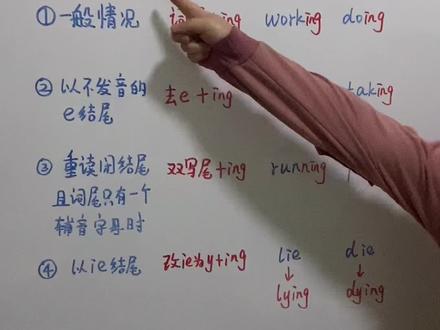 ①一般情况 working doing
②以不发音的 去e+ing taking
e结尾
③重读闭结尾 双写尾+ing running
且词尾只有一个
辅音字母时
④以ie结尾 改ie为y+ing lie die
↓ ↓
lying dying